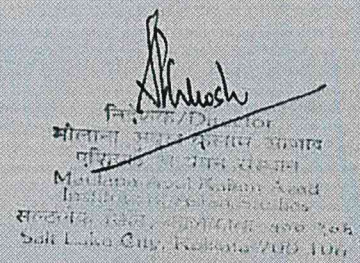 निदेशक/Director
मौलाना अबुल कलाम आजाद
एशियाई अध्ययन संस्थान
Maulana Abul Kalam Azad
Institute of Asian Studies
सल्टलेक सिटी, कोलकाता ७०० १०६
Salt Lake City, Kolkata 700 106